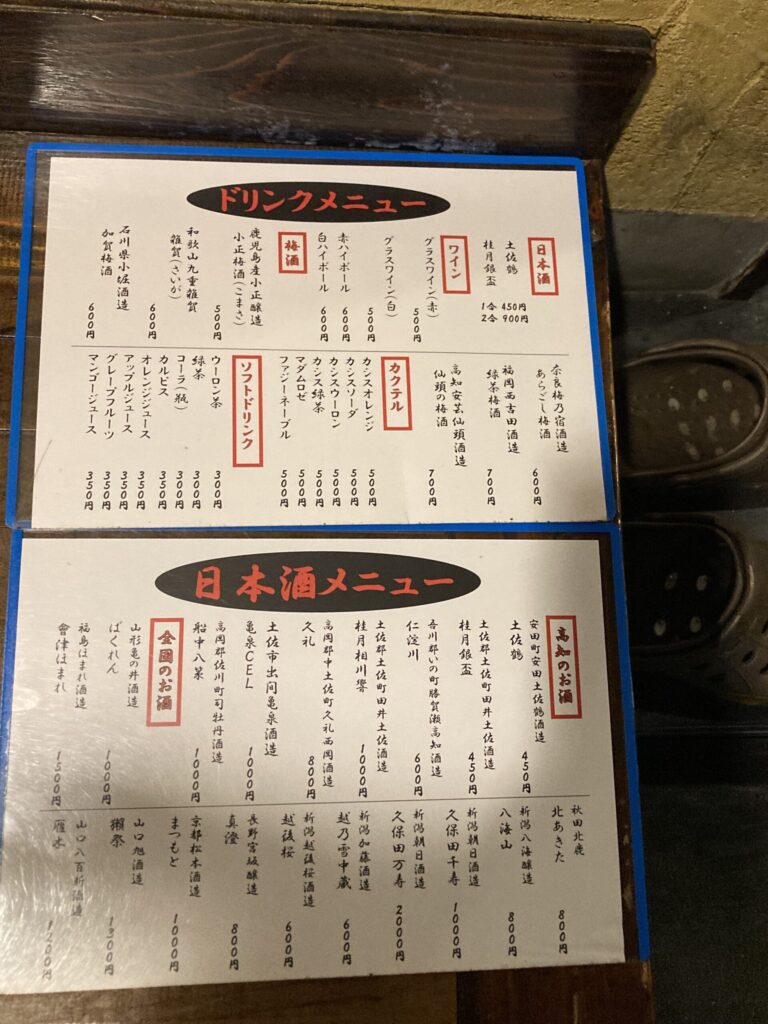 ドリンクメニュー
日本酒
土佐鶴
桂月銀盃
1合 450円
2合 900円
ワイン
グラスワイン(赤)
500円
グラスワイン(白)
500円
赤ハイボール
600円
白ハイボール
600円
梅酒
鹿児島産小正醸造
小正梅酒(こまさ)
500円
和歌山九重雑賀
雑賀(さいが)
600円
石川県小堀酒造
加賀梅酒
600円
奈良梅乃宿酒造
あらごし梅酒
600円
福岡西吉田酒造
緑茶梅酒
700円
高知安芸仙頭酒造
仙頭の梅酒
700円
カクテル
カシスオレンジ
500円
カシスソーダ
500円
カシスウーロン
500円
カシス緑茶
500円
マダムロゼ
500円
ファジーネーブル
500円
ソフトドリンク
ウーロン茶
300円
緑茶
300円
コーラ(瓶)
300円
カルピス
350円
オレンジジュース
350円
アップルジュース
350円
グレープフルーツ
350円
マンゴージュース
350円
日本酒メニュー
高知のお酒
安田町安田土佐鶴酒造
土佐鶴
450円
土佐郡土佐町田井土佐酒造
桂月銀盃
450円
吾川郡いの町勝賀瀬高知酒造
仁淀川
600円
土佐郡土佐町田井土佐酒造
桂月相川譽
1000円
高岡郡中土佐町久礼西岡酒造
久礼
800円
土佐市出間亀泉酒造
亀泉CEL
1000円
高岡郡佐川町司牡丹酒造
船中八策
1000円
全国のお酒
山形亀の井酒造
ばくれん
1000円
福島ほまれ酒造
會津ほまれ
1500円
秋田北鹿
北あきた
800円
新潟八海醸造
八海山
800円
新潟朝日酒造
久保田千寿
1000円
新潟朝日酒造
久保田万寿
2000円
新潟加藤酒造
越乃雪中蔵
600円
新潟越後桜酒造
越後桜
600円
長野宮坂醸造
真澄
800円
京都松本酒造
まつもと
1000円
山口旭酒造
獺祭
1300円
山口八百新酒造
雁木
1200円